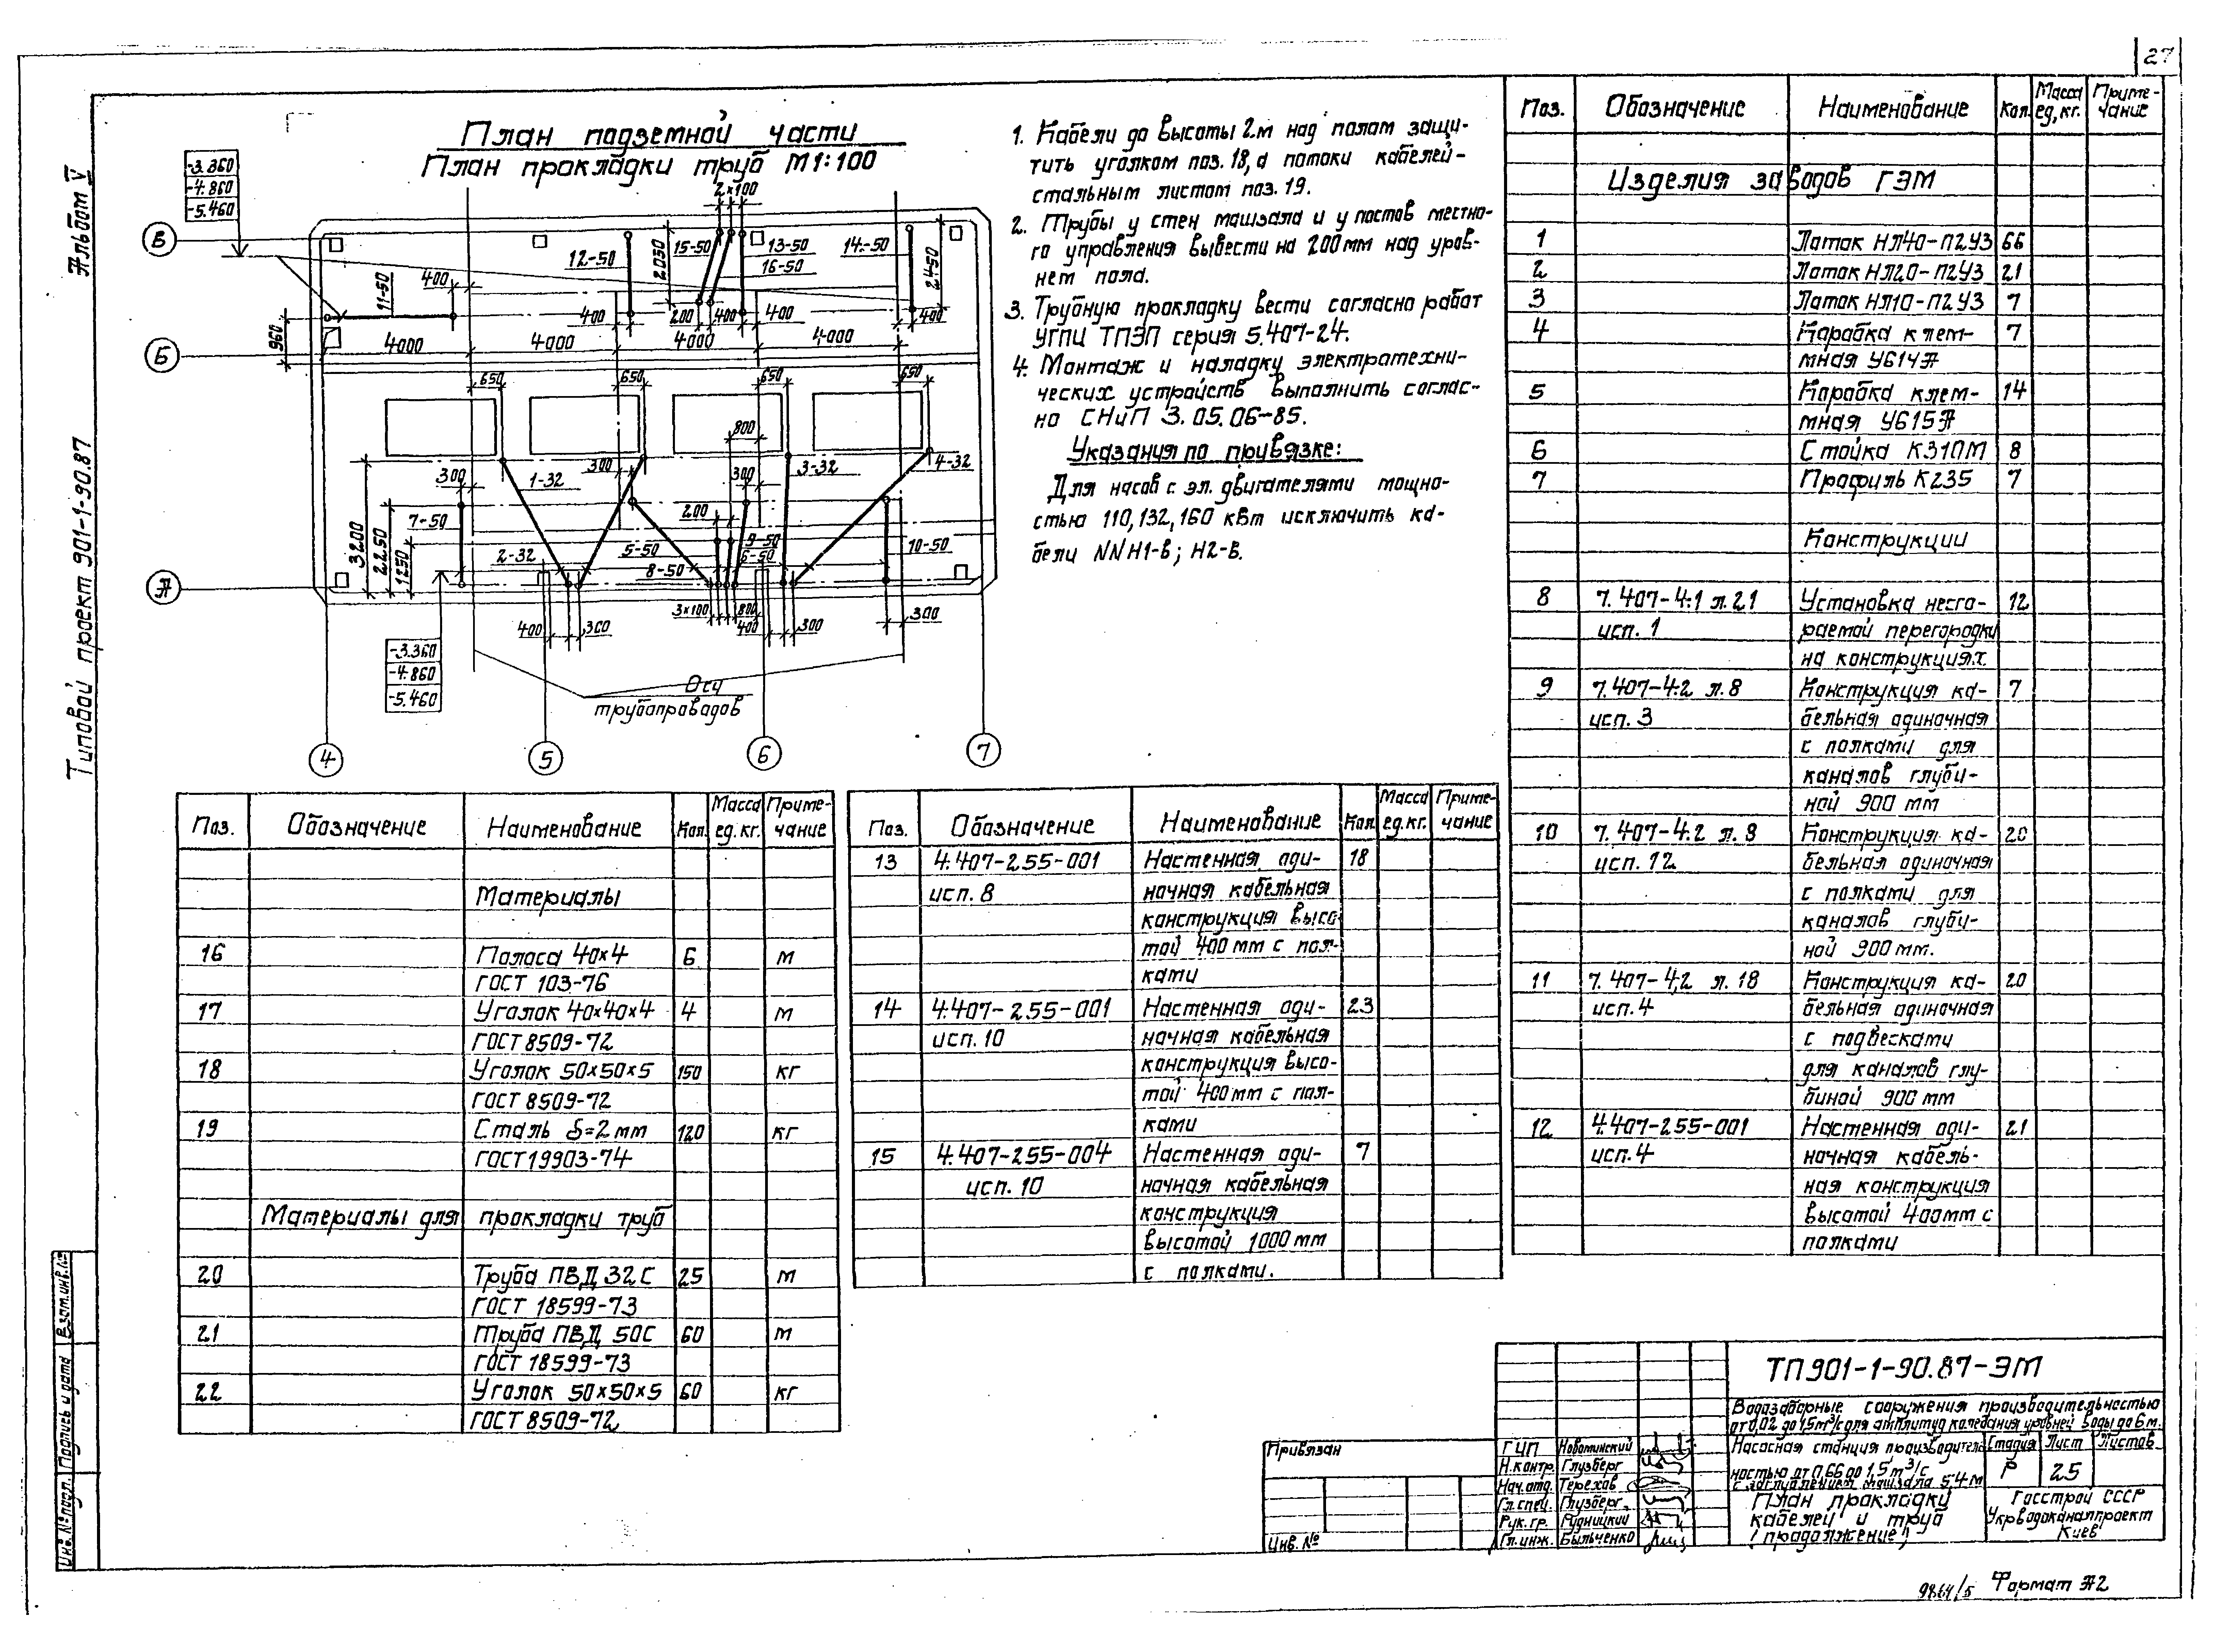 27
Альбом V
Типовой проект 901-1-90.87
План подземной части
План прокладки труб М1:100
-3.360
-4.860
-5.460
2×100
В
Б
А
12-50
15-50
2050
13-50
16-50
14-50
2450
11-50
400
400
200
400
400
400
960
4000
4000
4000
4000
650
650
650
650
800
300
1-32
300
300
3-32
4-32
7-50
200
2-32
5-50
9-50
6-50
8-50
10-50
3200
2250
1250
3×100
800
400
300
400
300
300
-3.360
-4.860
-5.460
Оси
трубопроводов
4
5
6
7
1. Кабели до высоты 2м над полом защи-
тить уголком поз. 18, а потоки кабелей-
стальным листом поз. 19.
2. Трубы у стен машзала и у постов местно-
го управления вывести на 200мм над уров-
нем пола.
3. Трубную прокладку вести согласно работ
УГПИ ТПЭП серия 5.407-24.
4. Монтаж и наладку электротехни-
ческих устройств выполнить соглас-
но СНиП 3.05.06-85.
Указания по привязке:
Для насов с эл. двигателями мощно-
стью 110,132,160 кВт исключить ка-
бели NNН1-В; Н2-В.
Поз. Обозначение Наименование Кол. Масса ед, кг. Приме-чание
Изделия заводов ГЭМ
1 Лоток НЛ40-П2У3 66
2 Лоток НЛ20-П2У3 21
3 Лоток НЛ10-П2У3 7
4 Коробка клем- 7
мная У614А
5 Коробка клем- 14
мная У615А
6 Стойка К310М 8
7 Профиль К235 7
Конструкции
8 7.407-4.1 л.21 Установка несго- 12
исп. 1 раемой перегородки
на конструкциях.
9 7.407-4.2 л. 8 Конструкция ка- 7
исп. 3 бельная одиночная
с полками для
каналов глуби-
ной 900 мм
10 7.407-4.2 л. 8 Конструкция ка- 20
исп. 12 бельная одиночная
с полками для
каналов глуби-
ной 900мм.
11 7.407-4,2 л. 18 Конструкция ка- 20
исп. 4 бельная одиночная
с подвесками
для каналов глу-
биной 900 мм
12 4.407-255-001 Настенная оди- 21
исп. 4 ночная кабель-
ная конструкция
высотой 400мм с
полками
Поз. Обозначение Наименование Кол. Масса ед. кг. Приме-чание
Материалы
16 Полоса 40×4 6 м
ГОСТ 103-76
17 Уголок 40×40×4 4 м
ГОСТ 8509-72
18 Уголок 50×50×5 150 кг
ГОСТ 8509-72
19 Сталь δ=2мм 120 кг
ГОСТ19903-74
Материалы для прокладки труб
20 Труба ПВД 32С 25 м
ГОСТ 18599-73
21 Труба ПВД 50С 60 м
ГОСТ 18599-73
22 Уголок 50×50×5 60 кг
ГОСТ 8509-72
Поз. Обозначение Наименование Кол. Масса ед. кг. Приме-чание
13 4.407-255-001 Настенная оди- 18
исп. 8 ночная кабельная
конструкция высо
той 400 мм с пол-
ками
14 4.407-255-001 Настенная оди- 23
исп. 10 ночная кабельная
конструкция высо-
той 400мм с пол-
ками
15 4.407-255-004 Настенная оди- 7
исп. 10 ночная кабельная
конструкция
высотой 1000мм
с полками.
Инв. № подл. Подпись и дата Взам.инв.№
ТП901-1-90.87-ЭМ
Водозаборные сооружения производительностью
от 0,02 до 1,5м³/с для амплитуд колебания уровней воды до 6м.
Насосная станция производитель-
ностью от 0,66 до 1,5 м³/с
с заглублением машзала 5,4м
Стадия Лист Листов
Р 25
План прокладки
кабелей и труб
(продолжение)
Госстрой СССР
Укрводоканалпроект
Киев
Привязан
Инв. №
ГИП Новоминский
Н.контр. Глузберг
Нач.отд. Терехов
Гл.спец. Глузберг.
Рук.гр. Рудницкий
Гл.инж. Быльченко
9864/5 Формат А2